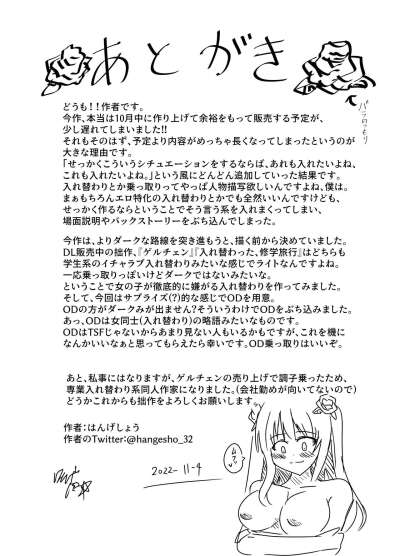 あとがき
バラのつもり
どうも!!作者です。
今作、本当は10月中に作り上げて余裕をもって販売する予定が、
少し遅れてしまいました!!
それもそのはず、予定より内容がめっちゃ長くなってしまったというのが
大きな理由です。
「せっかくこういうシチュエーションをするならば、あれも入れたいよね、
これも入れたいよね。」という風にどんどん追加していった結果です。
入れ替わりとか乗っ取りってやっぱ人物描写欲しいんですよね、僕は。
まぁもちろんエロ特化の入れ替わりとかでも全然いいんですけども、
せっかく作るならということでそう言う系を入れまくってしまい、
場面説明やバックストーリーをぶち込んでしまった。
今作は、よりダークな路線を突き進もうと、描く前から決めていました。
DL販売中の拙作、『ゲルチェン』『入れ替わった、修学旅行』はどちらも
学生系のイチャラブ入れ替わりみたいな感じでライトなんですよね。
一応乗っ取りっぽいけどダークではないみたいな。
ということで女の子が徹底的に嫌がる入れ替わりを作ってみました。
そして、今回はサプライズ(?)的な感じでODを用意。
ODの方がダークみが出ません?そういうわけでODをぶち込みました。
あっ、ODは女同士(入れ替わり)の略語みたいなものです。
ODはTSFじゃないからあまり見ない人もいるかもですが、これを機に
なんかいいなぁと思ってもらえたら幸いです。OD乗っ取りはいいぞ。
あと、私事にはなりますが、ゲルチェンの売り上げで調子乗ったため、
専業入れ替わり系同人作家になりました。(会社勤めが向いてないので)
どうかこれからも拙作をよろしくお願いします。
作者:はんげしょう
作者のTwitter:@hangesho_32
2022-11-4